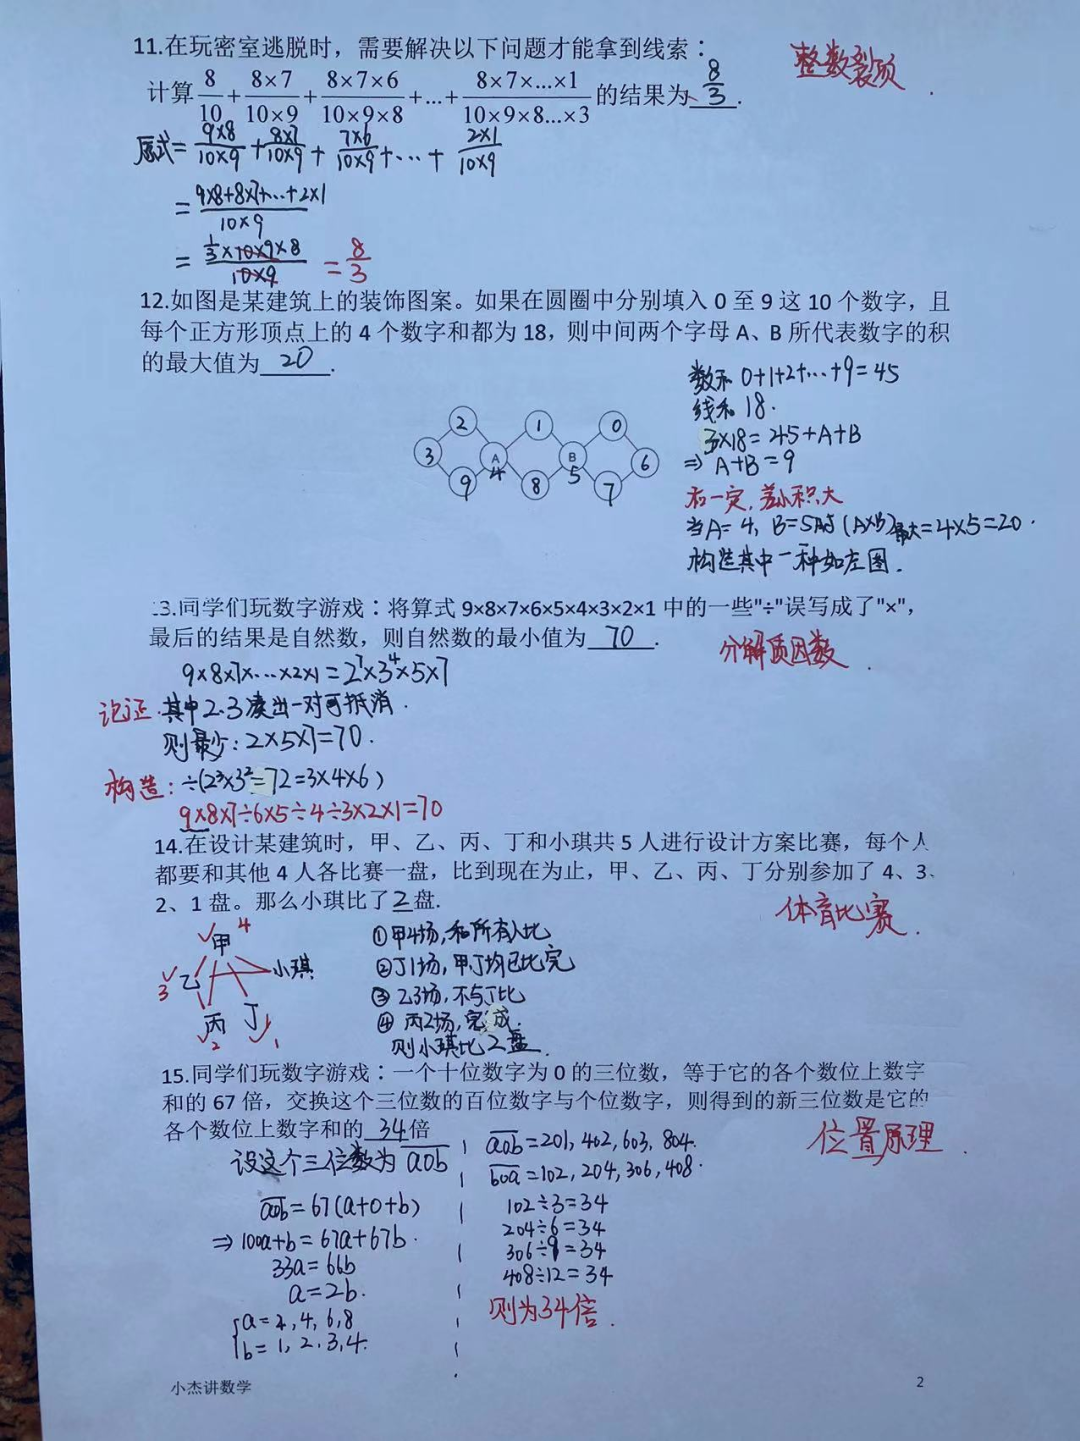 11.在玩密室逃脱时，需要解决以下问题才能拿到线索：
整数裂项
计算 8/10 + 8×7/10×9 + 8×7×6/10×9×8 +...+ 8×7×...×1/10×9×8...×3 的结果为 8/3 .
原式= 9×8/10×9 + 8×7/10×9 + 7×6/10×9 +...+ 2×1/10×9
= 9×8+8×7+...+2×1/10×9
= 1/3×10×9×8/10×9 = 8/3
12.如图是某建筑上的装饰图案。如果在圆圈中分别填入 0 至 9 这 10 个数字，且
每个正方形顶点上的 4 个数字和都为 18，则中间两个字母 A、B 所代表数字的积
的最大值为 20 .
数和 0+1+2+...+9=45
线和 18.
3×18=45+A+B
⇒ A+B=9
和一定,差小积大
当A=4, B=5时 (A×B)最大=4×5=20.
构造其中一种如左图.
2 1 0
3 A 4 B 5 6
9 8 7
13.同学们玩数字游戏：将算式 9×8×7×6×5×4×3×2×1 中的一些"÷"误写成了"×"，
最后的结果是自然数，则自然数的最小值为 70 .
分解质因数
9×8×7×...×2×1=2⁷×3⁴×5×7
论证: 其中2.3凑出一对可抵消.
则最少:2×5×7=70.
构造: ÷(2³×3²=72=3×4×6)
9×8×7÷6×5÷4÷3×2×1=70
14.在设计某建筑时，甲、乙、丙、丁和小琪共 5 人进行设计方案比赛，每个人
都要和其他 4 人各比赛一盘，比到现在为止，甲、乙、丙、丁分别参加了 4、3、
2、1 盘。那么小琪比了 2 盘.
体育比赛
甲 4
乙 3
小琪
丙 2
丁 1
①甲4场,和所有人比
②丁1场,甲丁均已比完
③乙3场,不与丁比
④丙2场,完成.
则小琪比2盘.
15.同学们玩数字游戏：一个十位数字为 0 的三位数，等于它的各个数位上数字
和的 67 倍，交换这个三位数的百位数字与个位数字，则得到的新三位数是它的
各个数位上数字和的 34 倍
位置原理
设这个三位数为 a0b
a0b=67(a+0+b)
⇒100a+b=67a+67b.
33a=66b
a=2b.
a=2,4,6,8
b=1,2,3,4.
a0b=201,402,603,804.
b0a=102,204,306,408.
102÷3=34
204÷6=34
306÷9=34
408÷12=34
则为34倍.
小杰讲数学
2